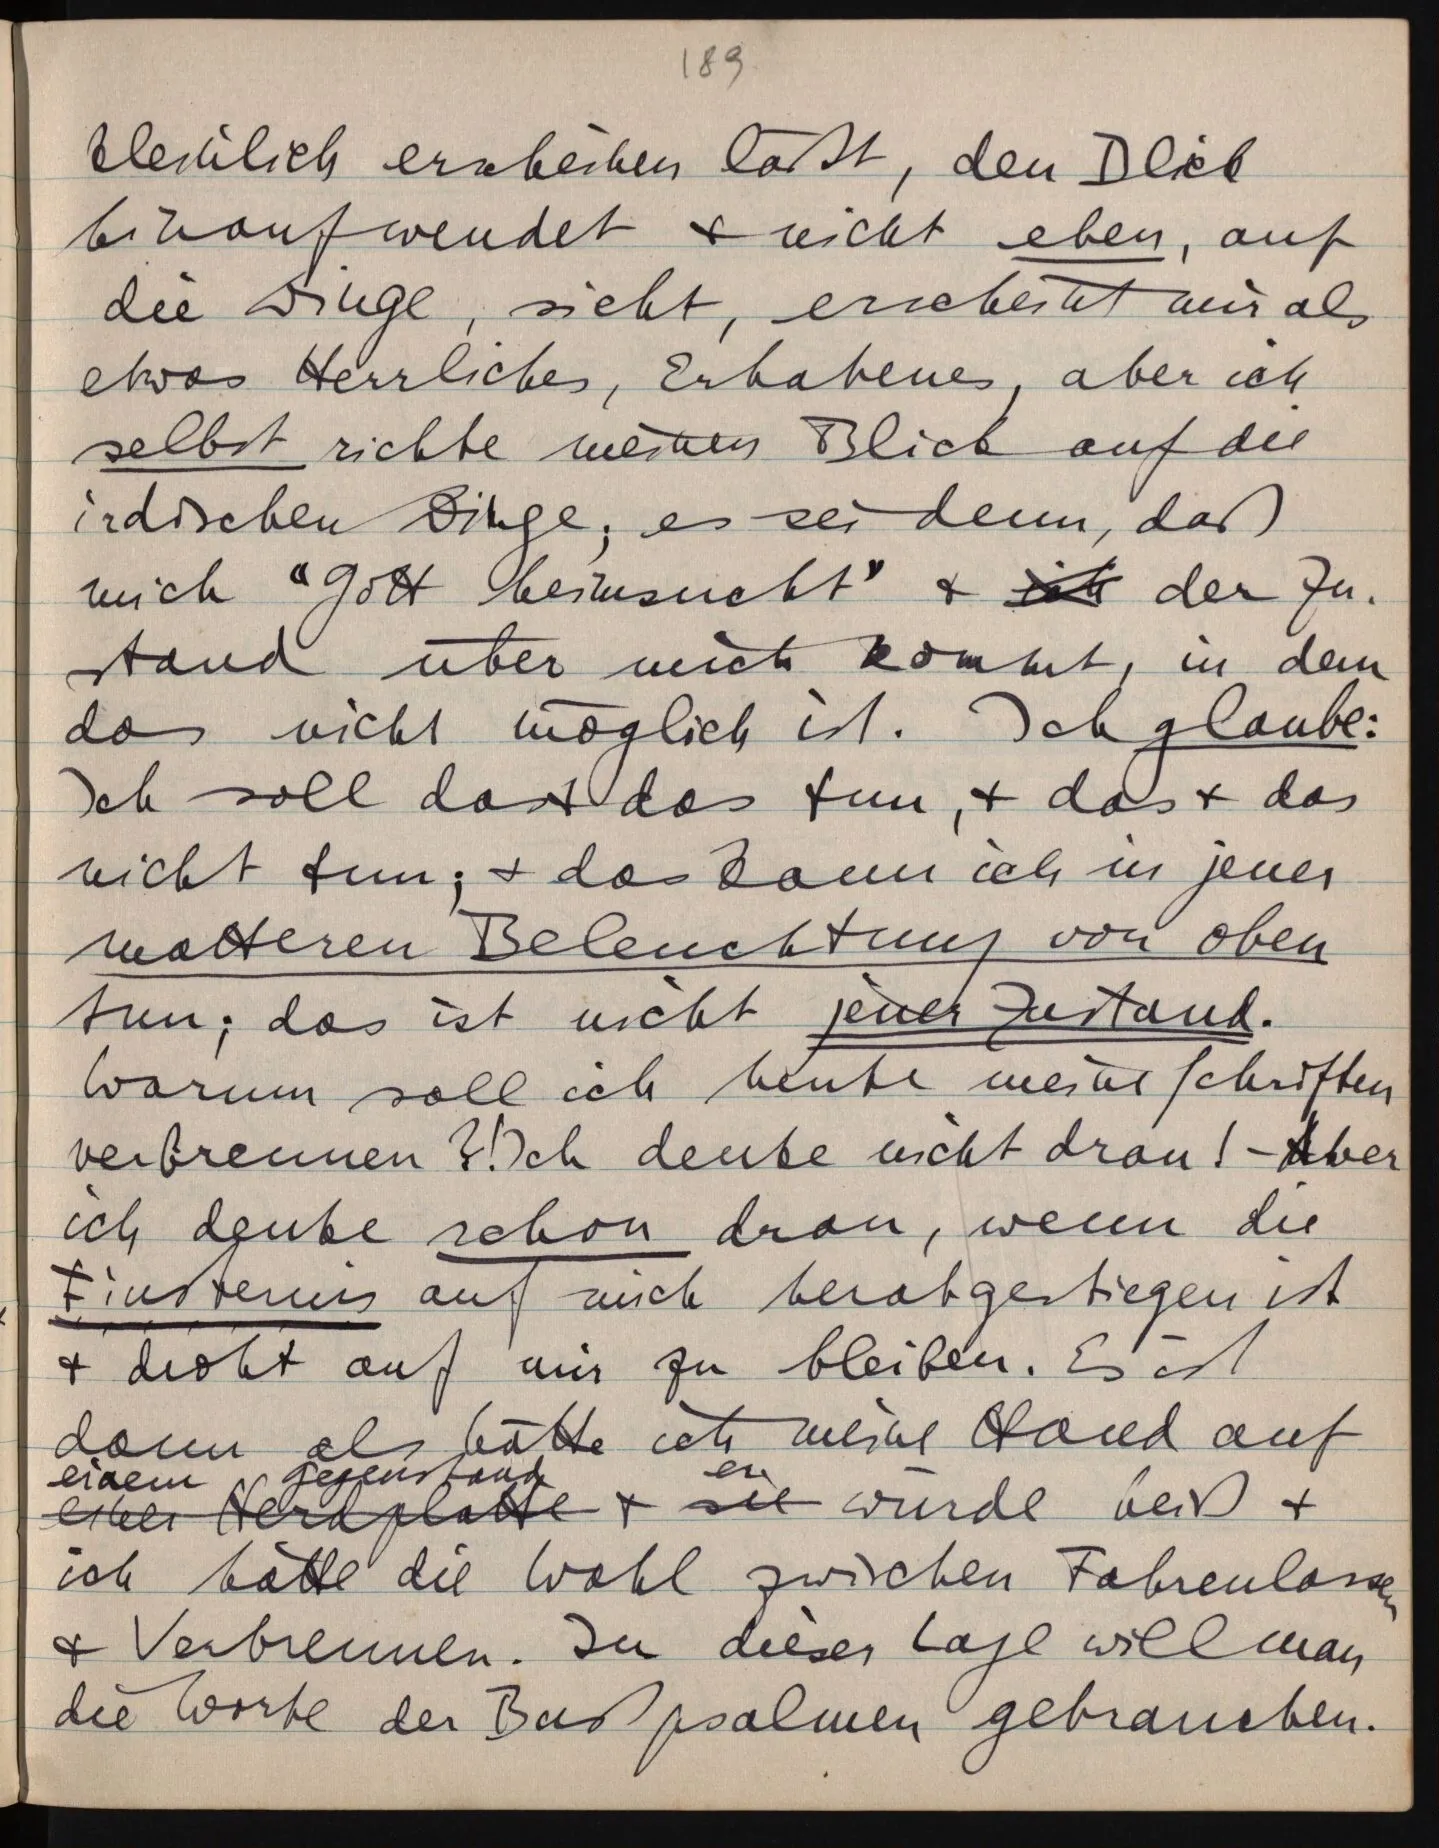 189
kleinlich erscheinen läßt, den Blick
hinaufwendet & nicht eben, auf
die Dinge, sieht, erscheint mir als
etwas Herrliches, Erhabenes, aber ich
selbst richte meinen Blick auf die
irdischen Dinge; es sei denn, daß
mich "Gott heimsucht" & ich der Zu-
stand über mich kommt, in dem
das nicht möglich ist. Ich glaube:
Ich soll das & das tun, & das & das
nicht tun; & das kann ich in jener
matteren Beleuchtung von oben
tun; das ist nicht jener Zustand.
Warum soll ich heute meine Schriften
verbrennen?! Ich denke nicht dran! – Aber
ich denke schon dran, wenn die
Finsternis auf mich herabgestiegen ist
& droht auf mir zu bleiben. Es ist
dann als hätte ich meine Hand auf
einem Gegenstand er
einer Herdplatte & sie würde heiß &
ich hätte die Wahl zwischen Fahrenlassen
& Verbrennen. In dieser Lage will man
die Worte der Bußpsalmen gebrauchen.